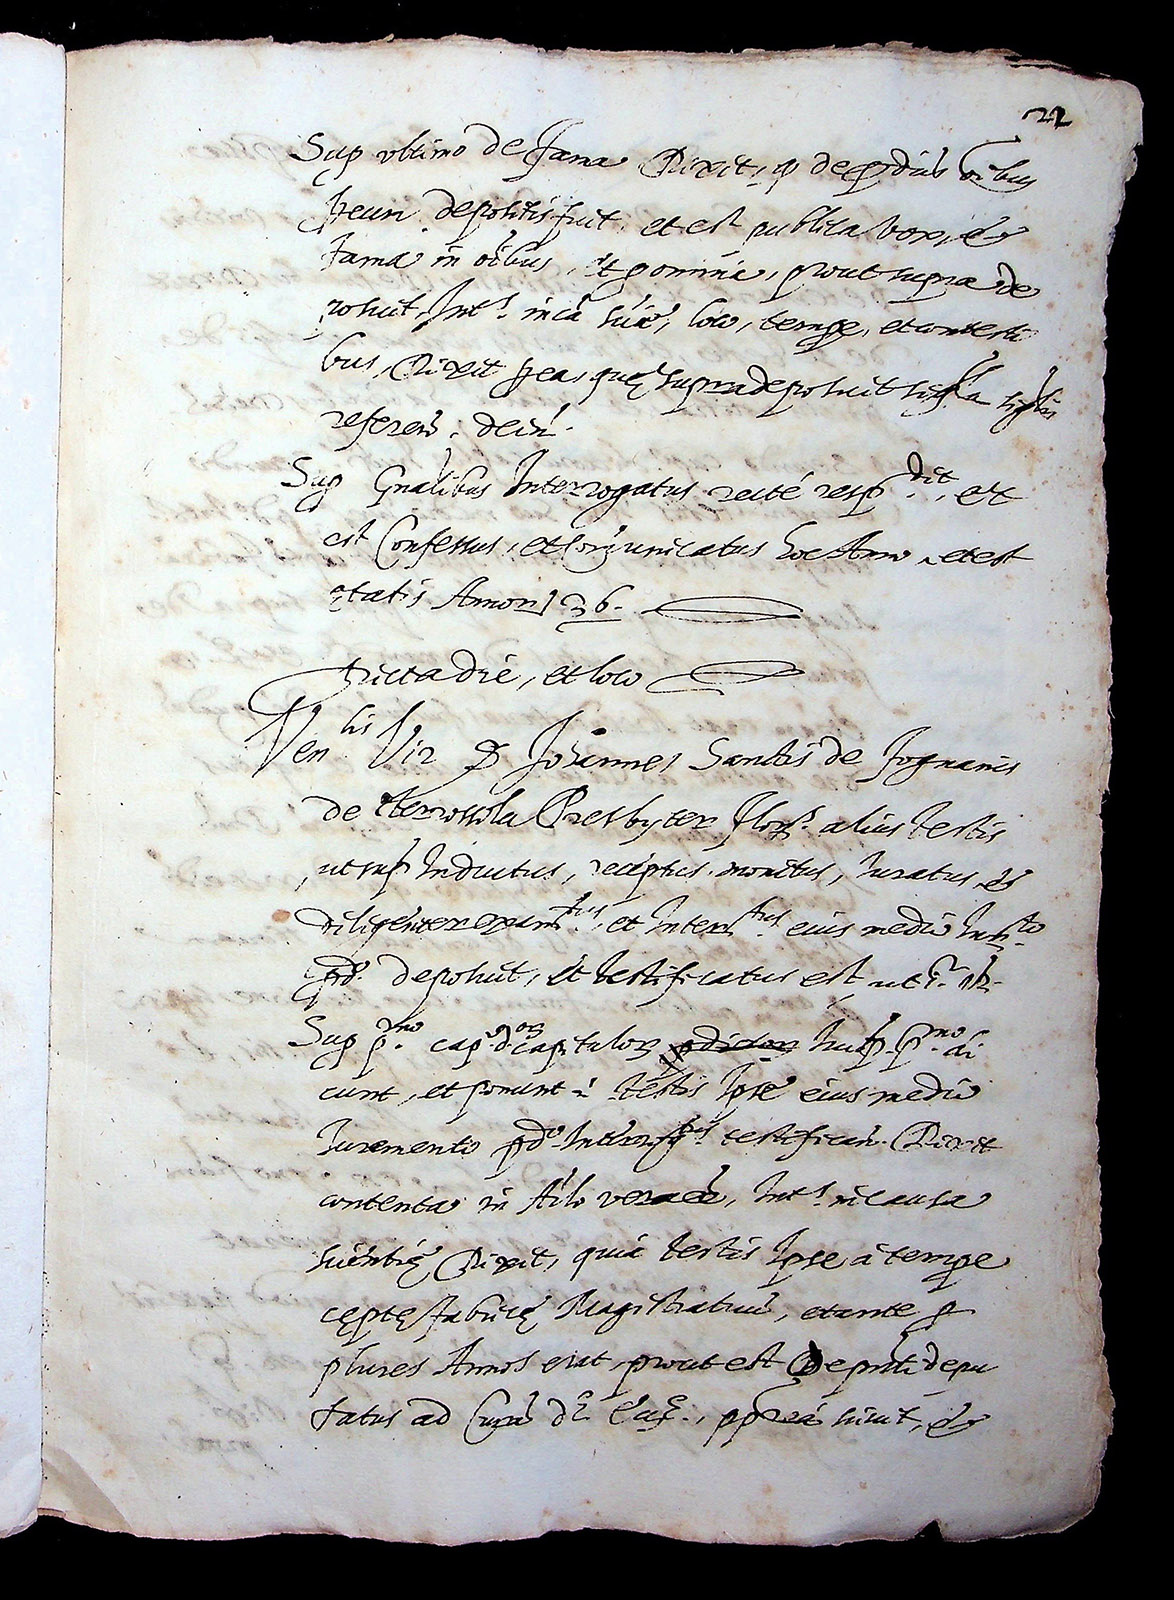 22
Sup ultimo de fama Dixit, q de pdictis oibus
p eum depositis fuit, et est publica vox, &
fama in oibus, et p omnia, prout supra de
posuit, Int.s in ca sciē, loco, tempe, et contesti
bus, Dixit p ea, quę supra deposuit singla singlis
referen. decen.
Sup Gnalibus Interrogatus recté resp.dit, et
est Confessus, et comunicatus hoc Anno, et est
ętatis Annor 36.
Dicta die, et loco
Ven.lis Vir D Johannes Sanctis de
de Presbyter Flor.s alius testis
ut sup Inductus, receptus, monitus, Iuratus, &
diligenter exam.tus, et Inter.tus eius medio Iur.to
pd.o deposuit, et testificatus est ut i.r
Sup p.mo cap.o d.or capitulor pdictor huisp. p.mo di
cunt, et ponunt testis Ipse eius medio
Iuramento pd.o Interr.tus testifican. Dixit
contenta in Ailo vera eē, Int.s in causa
scientię Dixit, quia testis Ipse á tempe
cęptę fabricę Magistratum, et ante p
plures Annos erat, prout est De pnti depu
tatus ad Curā d.e Ecc.ę, pp reā scivit, &